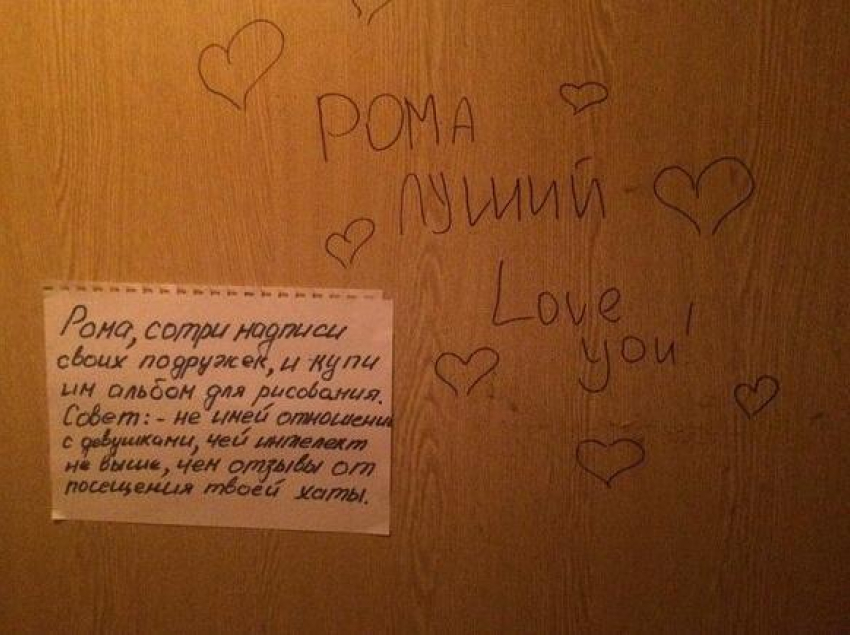 РОМА
ЛУШИЙ
Love
you!
Рома, сотри надписи
своих подружек, и купи
им альбом для рисования.
Совет: - не имей отношения
с девушками, чей интелект
не выше, чем отзывы от
посещения твоей хаты.